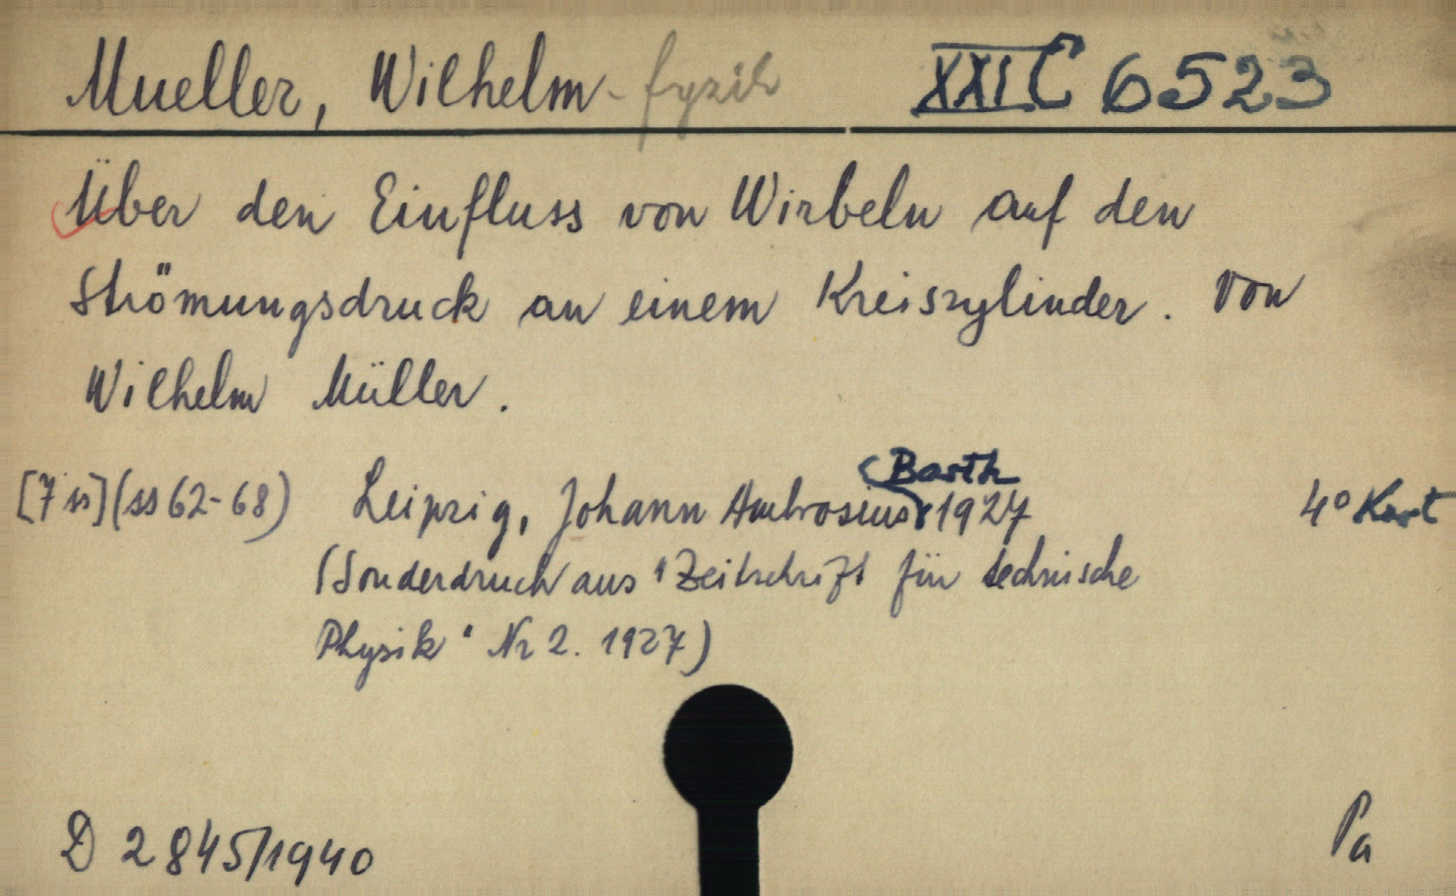 Mueller, Wilhelm - fyzik XXI C 6523
Über den Einfluss von Wirbeln auf den
Strömungsdruck an einem Kreiszylinder. Von
Wilhelm Müller.
Barth
[7 ss] (ss 62-68) Leipzig, Johann Ambrosius 1927 4° Kart
(Sonderdruck aus "Zeitschrift für technische
Physik" Nr 2. 1927)
D 2845/1940 Pa